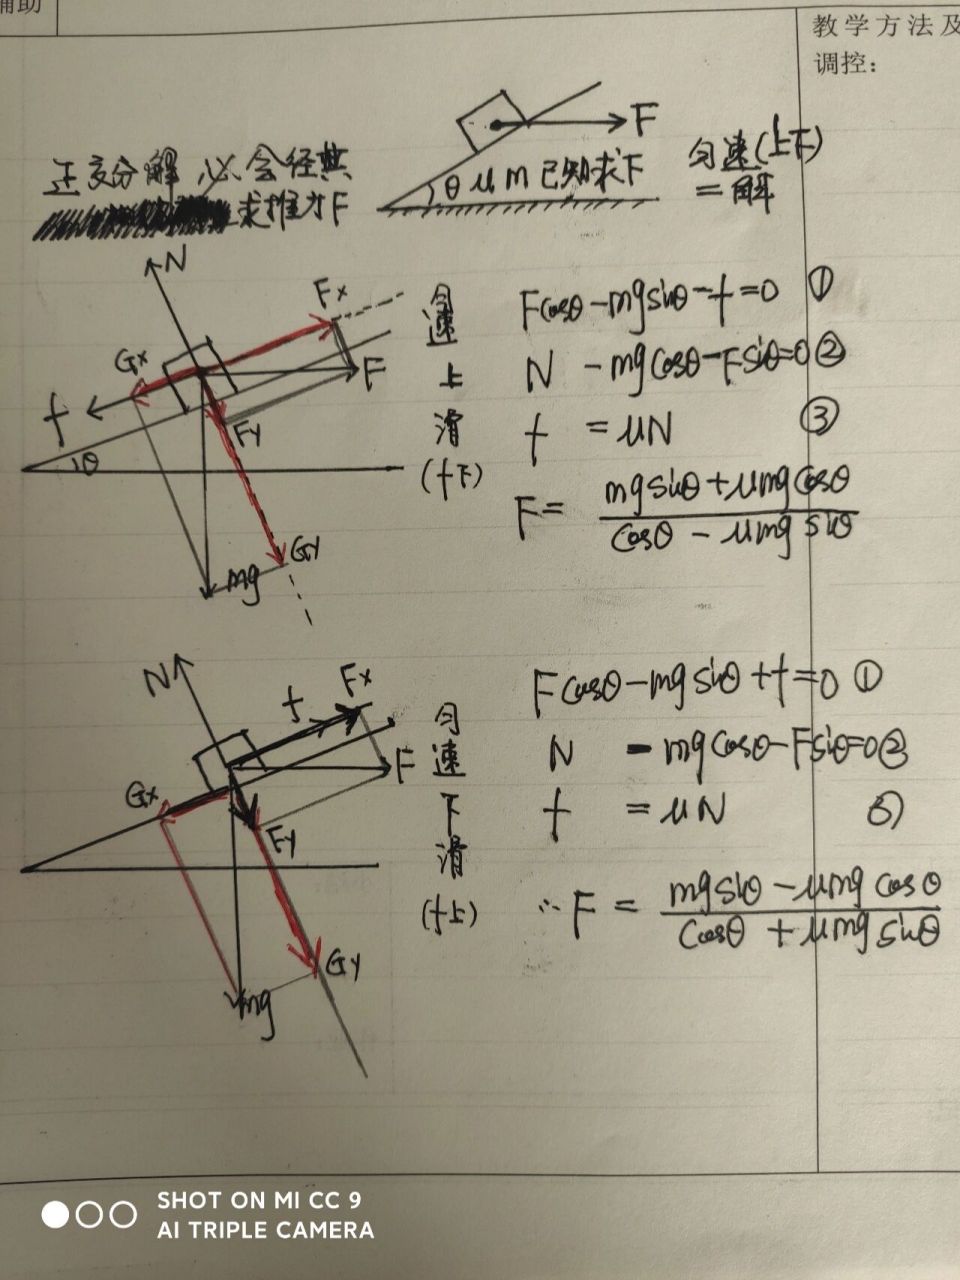 辅助
教学方法及
调控：
F
θ μ m 已知求F
匀速(上下)
=解
正交分解 必会经典
求推力F
N
Fx
Gx
F
f
Fy
θ
Gy
mg
匀速上滑(f下)
Fcosθ-mgsinθ-f=0 ①
N -mgcosθ-Fsinθ=0②
f =μN ③
F= mgsinθ+μmgcosθ
cosθ - μmg sinθ
N
f
Fx
F
Gx
Fy
Gy
mg
匀速下滑(f上)
Fcosθ-mgsinθ+f=0 ①
N -mgcosθ-Fsinθ=0②
f =μN ③
∴F = mgsinθ-μmgcosθ
cosθ + μmg sinθ
SHOT ON MI CC 9
AI TRIPLE CAMERA